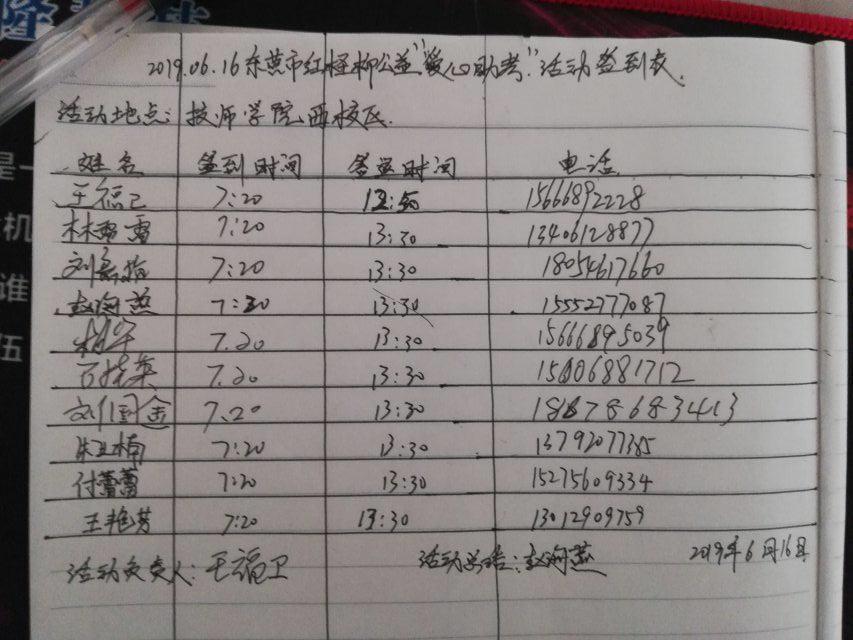 2019.06.16东营市红柽柳公益"爱心助考"活动签到表.
活动地点:技师学院西校区.
姓名 签到时间 签退时间 电话
王福卫 7:20 13:30 15666892228
林雪雪 7:20 13:30 13406128877
刘 7:20 13:30 18054617660
赵海燕 7:20 13:30 15552777087
杨军 7.20 13:30 15666895039
英 7.20 13:30 15806881712
刘国金 7.20 13:30 18678683413
朱亚楠 7:20 13:30 13792077385
付蕾蕾 7:20 13:30 15275609334
王艳芳 7:20 13:30 13012909759
活动负责人:王福卫 活动总结:赵海燕 2019年6月16日
是一
机
谁
伍